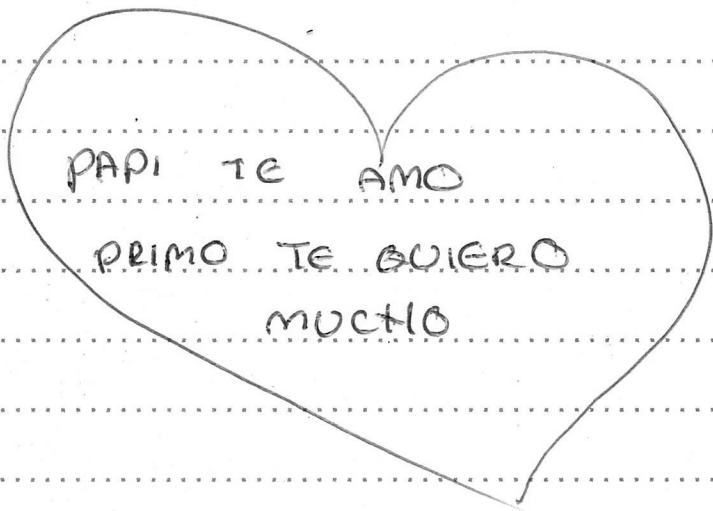 PAPI TE AMO
PRIMO TE QUIERO
MUCHO